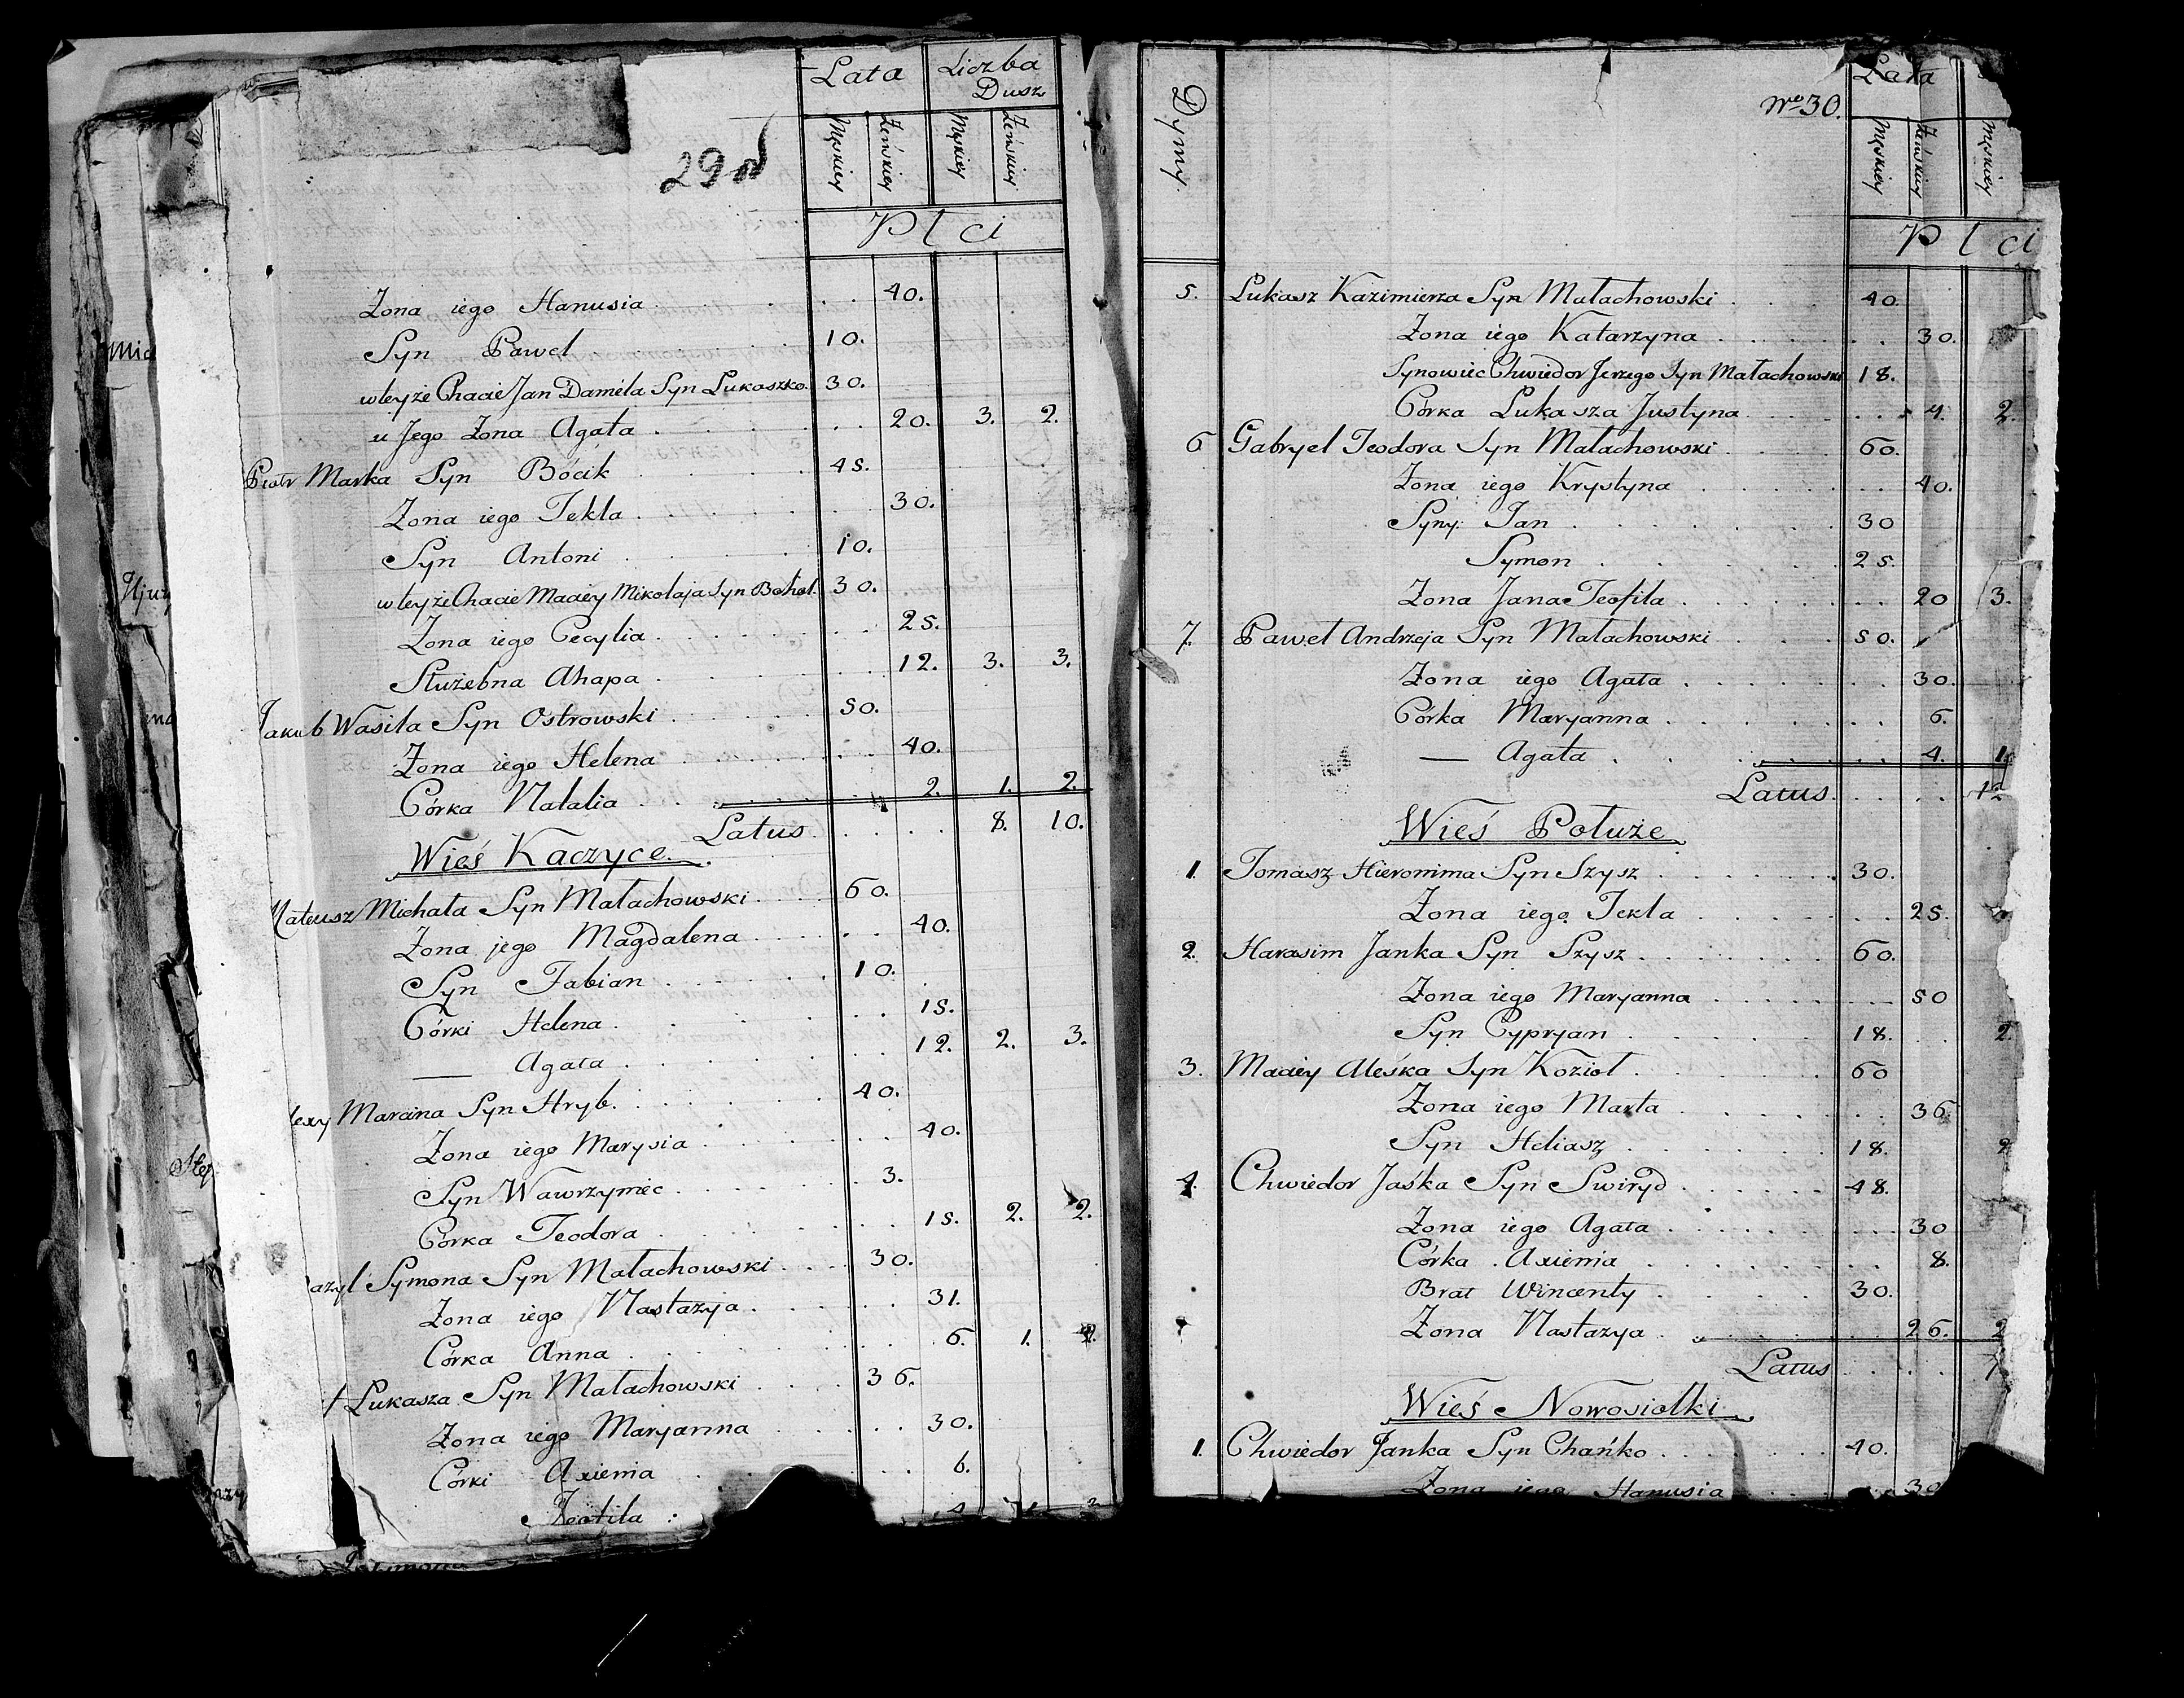 Lata Liczba Dusz
Męskiey Żeńskiey Męskiey Żeńskiey
29
Płci
Żona iego Hanusia 40.
Syn Paweł 10.
w teyże Chacie Jan Daniela Syn Lukaszko 30.
u Jego Żona Agata 20. 3. 2.
Piotr Marka Syn Bócik 45.
Żona iego Tekla 30.
Syn Antoni 10.
w teyże Chacie Maciey Mikołaja Syn 30.
Żona iego Cecylia 25.
Służebna Ahapa 12. 3. 3.
Jakub Wasila Syn Ostrowski 50.
Żona iego Helena 40.
Córka Natalia 2. 1. 2.
Latus 8. 10.
Wieś Kaczyce
Mateusz Michała Syn Małachowski 60.
Żona jego Magdalena 40.
Syn Fabian 10.
Córki Helena 15.
— Agata 12. 2. 3.
Marcina Syn Hryb. 40.
Żona iego Marysia 40.
Syn Wawrzyniec 3.
Córka Teodora 15. 2. 2.
Symona Syn Małachowski 30.
Żona iego Nastazya 31.
Córka Anna 6. 1. 2.
Łukasza Syn Małachowski 36.
Żona iego Maryanna 30.
Córki Axienia 6.
Teofila 4 1 3
Dymy
No 30.
Lata
Męskiey Żeńskiey Męskiey
Płci
5. Łukasz Kazimierza Syn Małachowski 40.
Żona iego Katarzyna 30.
Synowiec Chwiedor Jerzego Syn Małachowski 18.
Córka Łukasza Justyna 4. 2.
6 Gabryel Teodora Syn Małachowski 60.
Żona iego Krystyna 40.
Syny: Jan 30
Symon 25.
Żona Jana Teofila 20 3.
7. Paweł Andrzeja Syn Małachowski 50.
Żona iego Agata 30.
Córka Maryanna 6.
— Agata 4. 1.
Latus 12
Wieś Połuże
1. Tomasz Hieronima Syn Szysz 30.
Żona iego Tekla 25.
2. Harasim Janka Syn Szysz 60.
Żona iego Maryanna 50
Syn Cypryan 18. 2.
3. Maciey Aleśka Syn Kozioł 60
Żona iego Marta 36
Syn Heliasz 18. 2
4. Chwiedor Jaśka Syn Swiryd 48.
Żona iego Agata 30
Córka Axienia 8.
Brat Wincenty 30.
Żona Nastazya 26. 2
Latus
Wieś Nowosiołki
1. Chwiedor Janka Syn Chańko 40.
Żona iego Hanusia 30